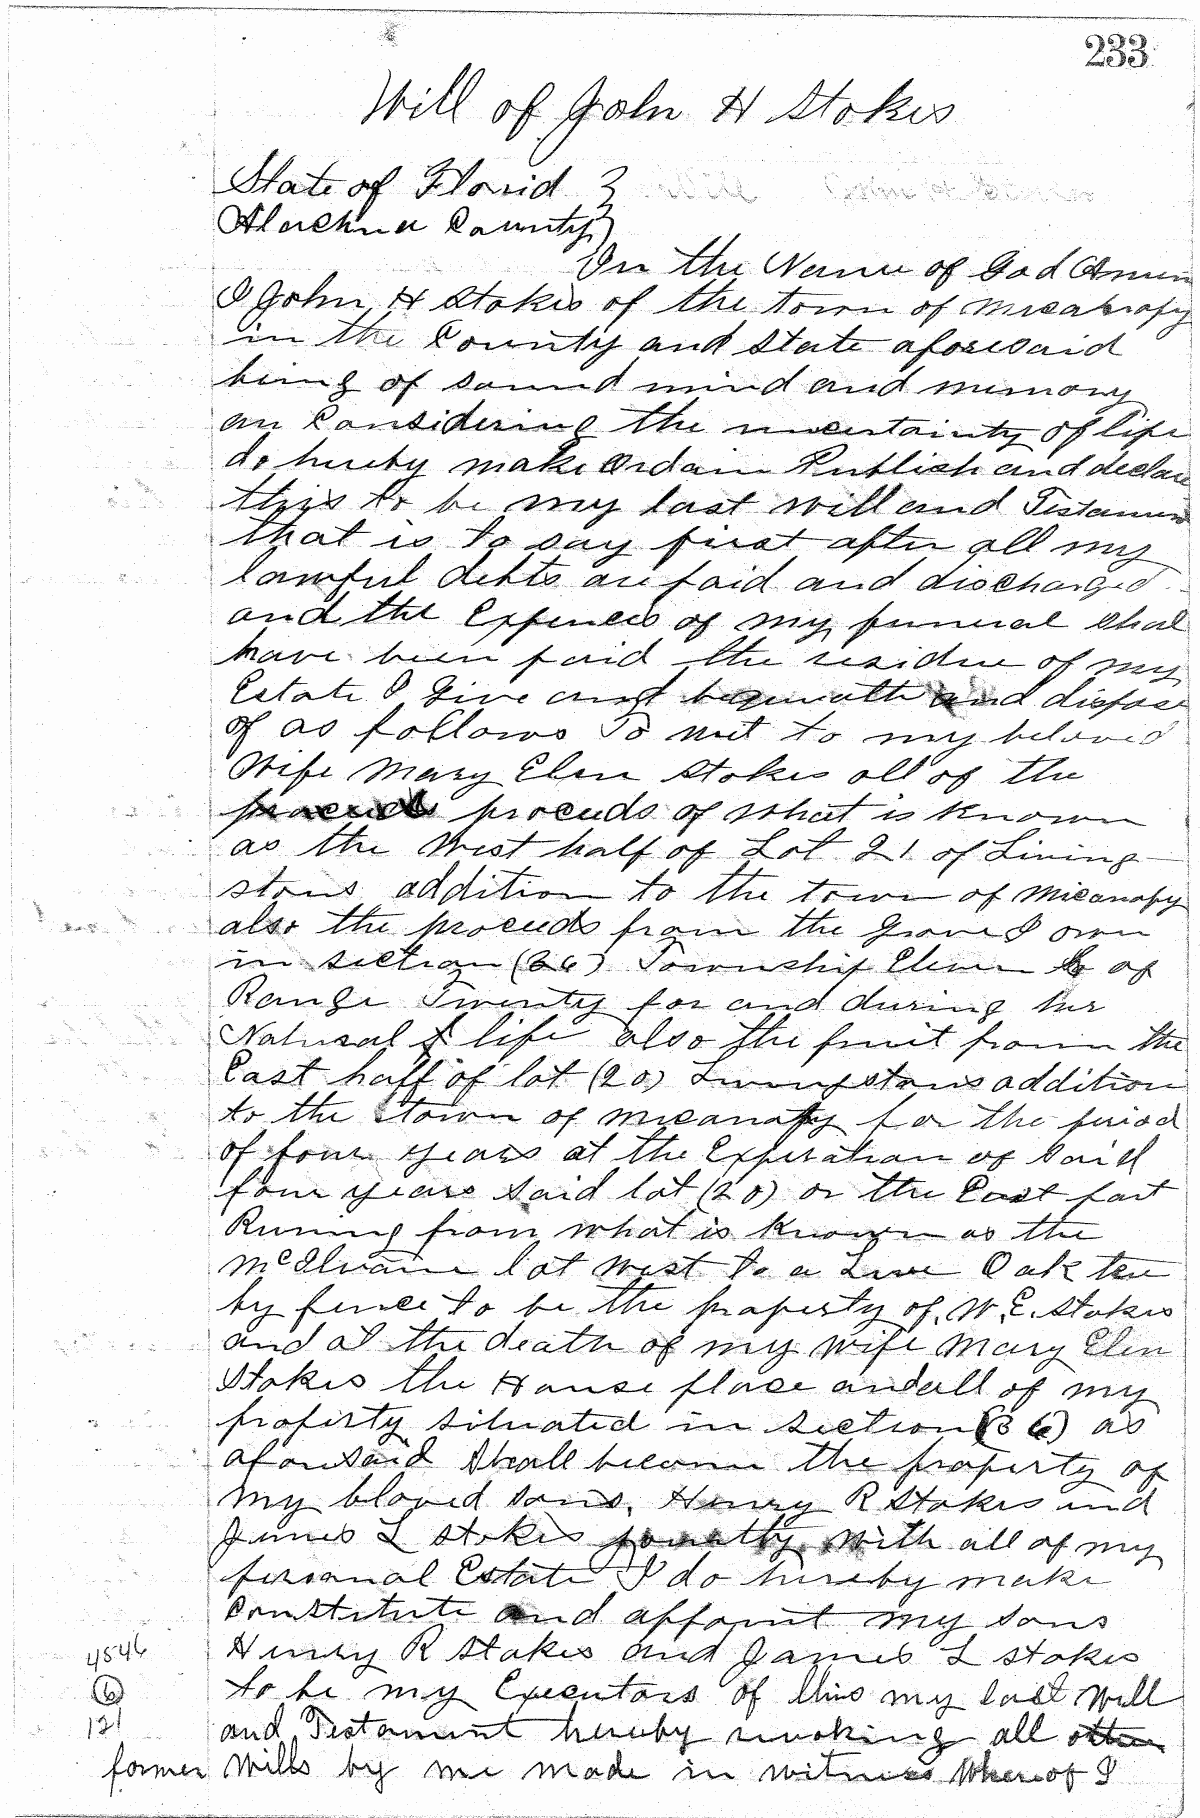 233
Will of John H Stokes
State of Florid }
Alachua County }
In the Name of God Amen
I John H Stokes of the town of Micanopy
in the County and State aforesaid
being of sound mind and memory
an Considering the uncertainty of life
do hereby make Ordain Publish and declare
this to be my last will and Testament
that is to say first after all my
lawful debts are paid and discharged
and the Expences of my funeral shal
have been paid the residue of my
Estate I Give and bequeath and dispose
of as follows To wit to my beloved
Wife Mary Elen Stokes all of the
proceeds proceeds of what is known
as the West half of Lot 21 of Living-
stons addition to the town of Micanopy
also the proceeds from the Grove I own
in section (36) Township Eleven of
Range Twenty for and during her
Natural life also the fruit from the
East half of lot (20) Livingstons addition
to the town of Micanopy for the period
of four years at the Expiration of said
four years said lot (20) or the East part
Runing from what is known as the
McIlvaine lot West to a Live Oak tree
by fence to be the property of W. E. Stokes
and at the death of my wife Mary Elen
Stokes the House place and all of my
property situated in section (36) as
aforesaid shall become the property of
my bloved sons, Henry R Stokes and
James L Stokes jointly with all of my
personal Estate I do hereby make
Constitute and appoint my sons
Henry R Stokes and James L Stokes
4546
to be my Executors of this my last Will
(6)
and Testament hereby revoking all other
121
former Wills by me made in witness Whereof I